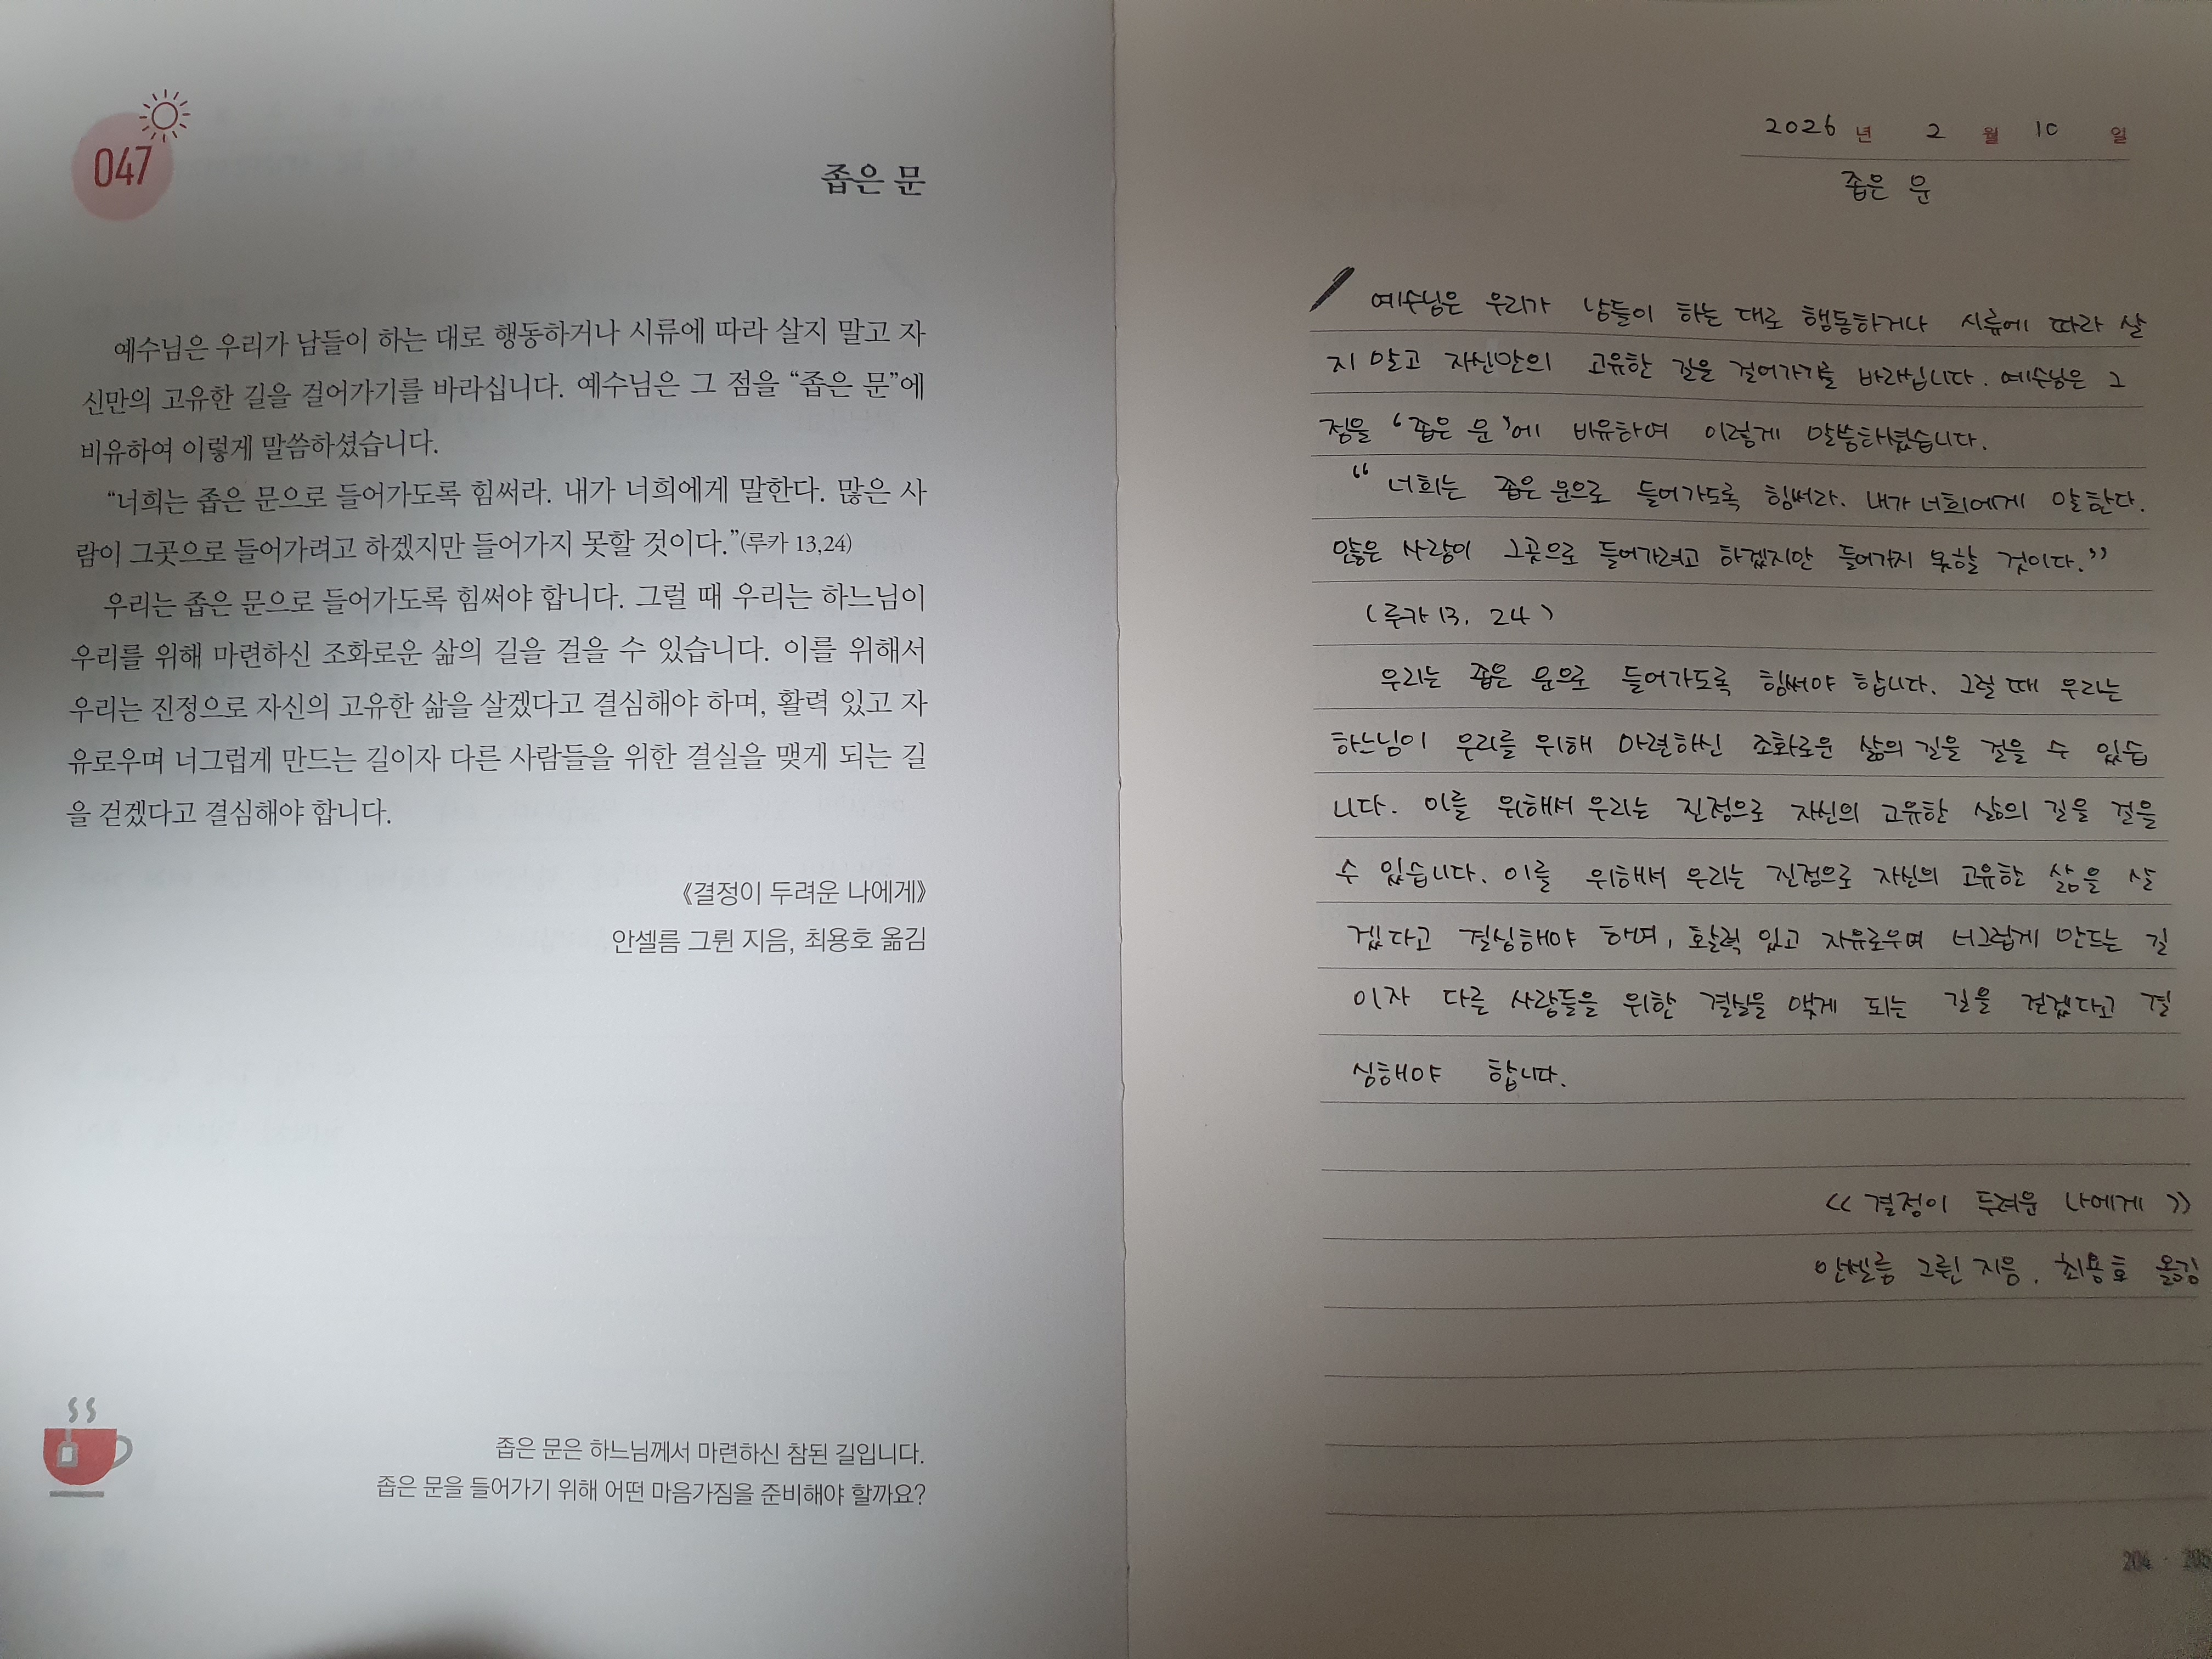 047
좁은 문
예수님은 우리가 남들이 하는 대로 행동하거나 시류에 따라 살지 말고 자
신만의 고유한 길을 걸어가기를 바라십니다. 예수님은 그 점을 “좁은 문”에
비유하여 이렇게 말씀하셨습니다.
“너희는 좁은 문으로 들어가도록 힘써라. 내가 너희에게 말한다. 많은 사
람이 그곳으로 들어가려고 하겠지만 들어가지 못할 것이다.”(루카 13,24)
우리는 좁은 문으로 들어가도록 힘써야 합니다. 그럴 때 우리는 하느님이
우리를 위해 마련하신 조화로운 삶의 길을 걸을 수 있습니다. 이를 위해서
우리는 진정으로 자신의 고유한 삶을 살겠다고 결심해야 하며, 활력 있고 자
유로우며 너그럽게 만드는 길이자 다른 사람들을 위한 결실을 맺게 되는 길
을 걷겠다고 결심해야 합니다.
《결정이 두려운 나에게》
안셀름 그륀 지음, 최용호 옮김
좁은 문은 하느님께서 마련하신 참된 길입니다.
좁은 문을 들어가기 위해 어떤 마음가짐을 준비해야 할까요?
2026 년 2 월 10 일
좁은 문
예수님은 우리가 남들이 하는 대로 행동하거나 시류에 따라 살
지 말고 자신만의 고유한 길을 걸어가기를 바라십니다. 예수님은 그
점을 ‘좁은 문’에 비유하여 이렇게 말씀하셨습니다.
“너희는 좁은 문으로 들어가도록 힘써라. 내가 너희에게 말한다.
많은 사람이 그곳으로 들어가려고 하겠지만 들어가지 못할 것이다.”
(루카 13, 24)
우리는 좁은 문으로 들어가도록 힘써야 합니다. 그럴 때 우리는
하느님이 우리를 위해 마련하신 조화로운 삶의 길을 걸을 수 있습
니다. 이를 위해서 우리는 진정으로 자신의 고유한 삶의 길을 걸을
수 있습니다. 이를 위해서 우리는 진정으로 자신의 고유한 삶을 살
겠다고 결심해야 하며, 활력 있고 자유로우며 너그럽게 만드는 길
이자 다른 사람들을 위한 결실을 맺게 되는 길을 걷겠다고 결
심해야 합니다.
<< 결정이 두려운 나에게 >>
안셀름 그륀 지음, 최용호 옮김
204 · 205